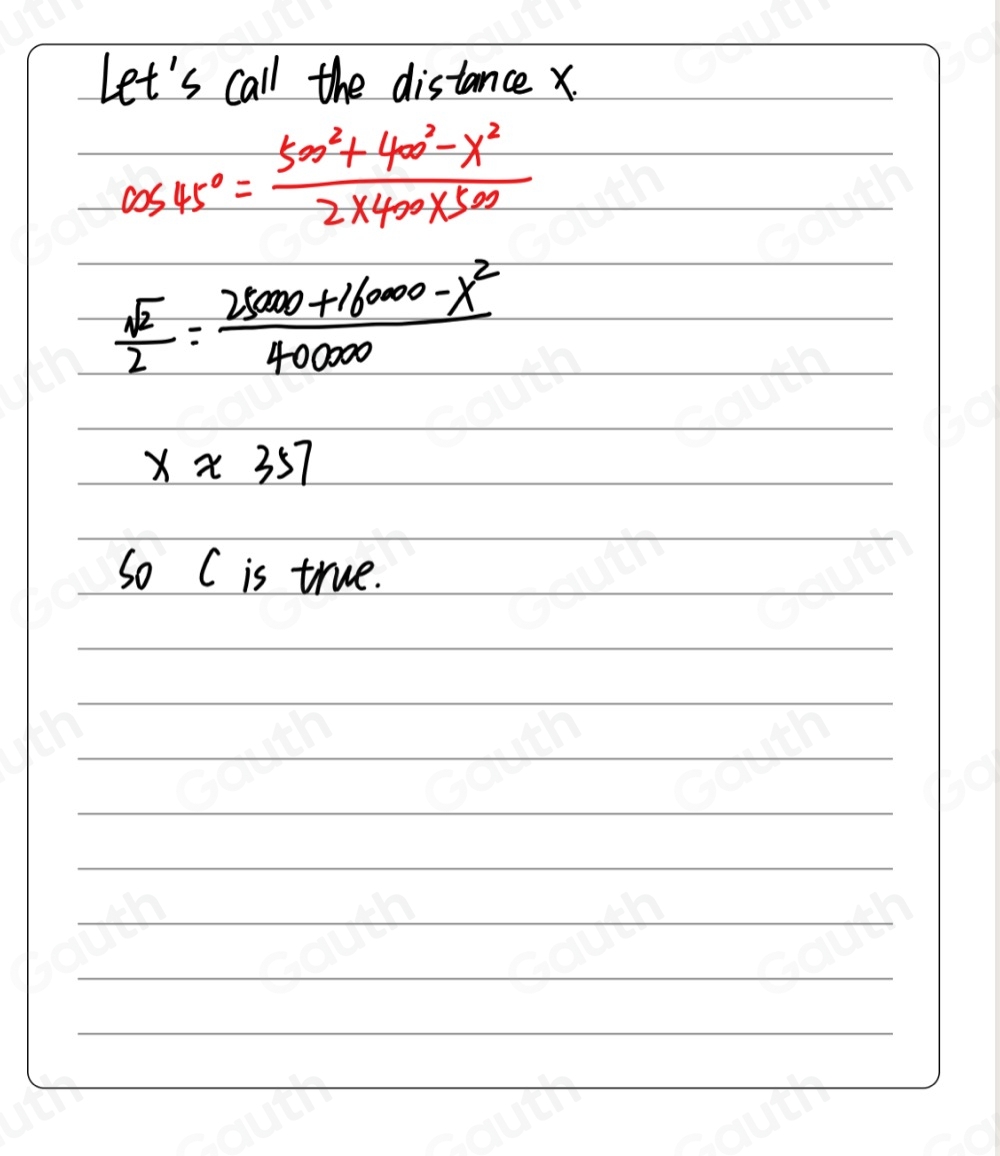 Let's call the distance x.
cos 45° = (500² + 400² - x²) / (2×400×500)
√2/2 = (250000 + 160000 - x²) / 400000
x ≈ 357
So C is true.
Gauth